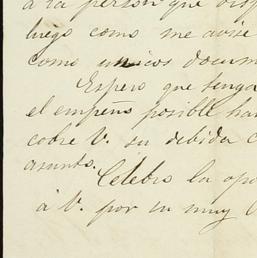 á la person que
luego como me avise
como unicos docum
Espero que tenga
el empeño posible ha
cobre V. su debida c
asunto.
Celebro la opo
á V. por su muy